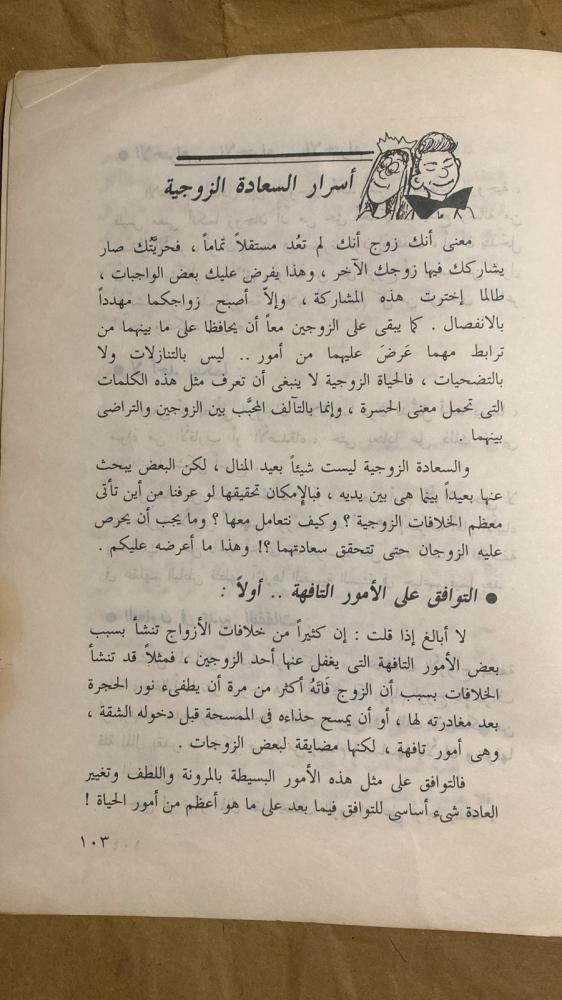 أسرار السعادة الزوجية
معنى أنك زوج أنك لم تعُد مستقلاً تماماً ، فحريَّتُك صار
يشاركك فيها زوجك الآخر ، وهذا يفرض عليك بعض الواجبات ،
طالما إخترت هذه المشاركة ، وإلاّ أصبح زواجكما مهدداً
بالانفصال . كما يبقى على الزوجين معاً أن يحافظا على ما بينهما من
ترابط مهما عَرضَ عليهما من أمور .. ليس بالتنازلات ولا
بالتضحيات ، فالحياة الزوجية لا ينبغى أن تعرف مثل هذه الكلمات
التى تحمل معنى الحسرة ، وإنما بالتآلف المحبَّب بين الزوجين والتراضى
بينهما .
والسعادة الزوجية ليست شيئاً بعيد المنال ، لكن البعض يبحث
عنها بعيداً بينما هى بين يديه ، فبالإمكان تحقيقها لو عرفنا من أين تأتى
معظم الخلافات الزوجية ؟ وكيف نتعامل معها ؟ وما يجب أن يحرص
عليه الزوجان حتى تتحقق سعادتهما ؟! وهذا ما أعرضه عليكم .
● التوافق على الأمور التافهة .. أولاً :
لا أبالغ إذا قلت : إن كثيراً من خلافات الأزواج تنشأ بسبب
بعض الأمور التافهة التى يغفل عنها أحد الزوجين ، فمثلاً قد تنشأ
الخلافات بسبب أن الزوج فَاتَهُ أكثر من مرة أن يطفىء نور الحجرة
بعد مغادرته لها ، أو أن يمسح حذاءه فى الممسحة قبل دخوله الشقة ،
وهى أمور تافهة ، لكنها مضايقة لبعض الزوجات .
فالتوافق على مثل هذه الأمور البسيطة بالمرونة واللطف وتغيير
العادة شىء أساسى للتوافق فيما بعد على ما هو أعظم من أمور الحياة !
١٠٣